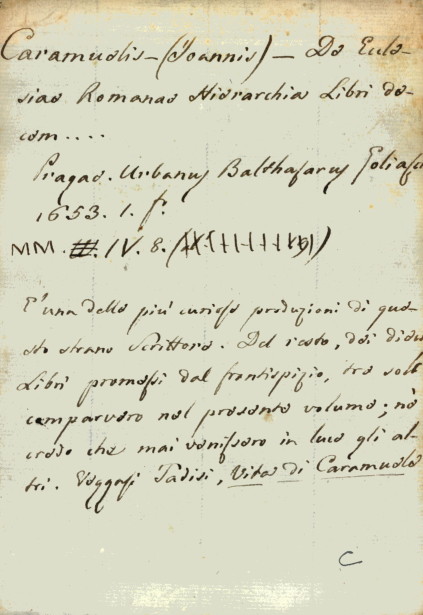 Caramuelis - (Joannis) - De Eccle-
siae Romanae Hierarchia Libri de-
cem....
Pragae. Urbanus Balthasarus Goliasch
1653. 1. f.
MM. IV. 8.
E' una delle più curiose produzioni di que-
sto strano Scrittore. Del resto, dei dieci
Libri promessi dal frontispizio, tre soli
comparvero nel presente volume; nè
credo che mai venissero in luce gli al-
tri. Veggasi Tadisi, Vita di Caramuele
C